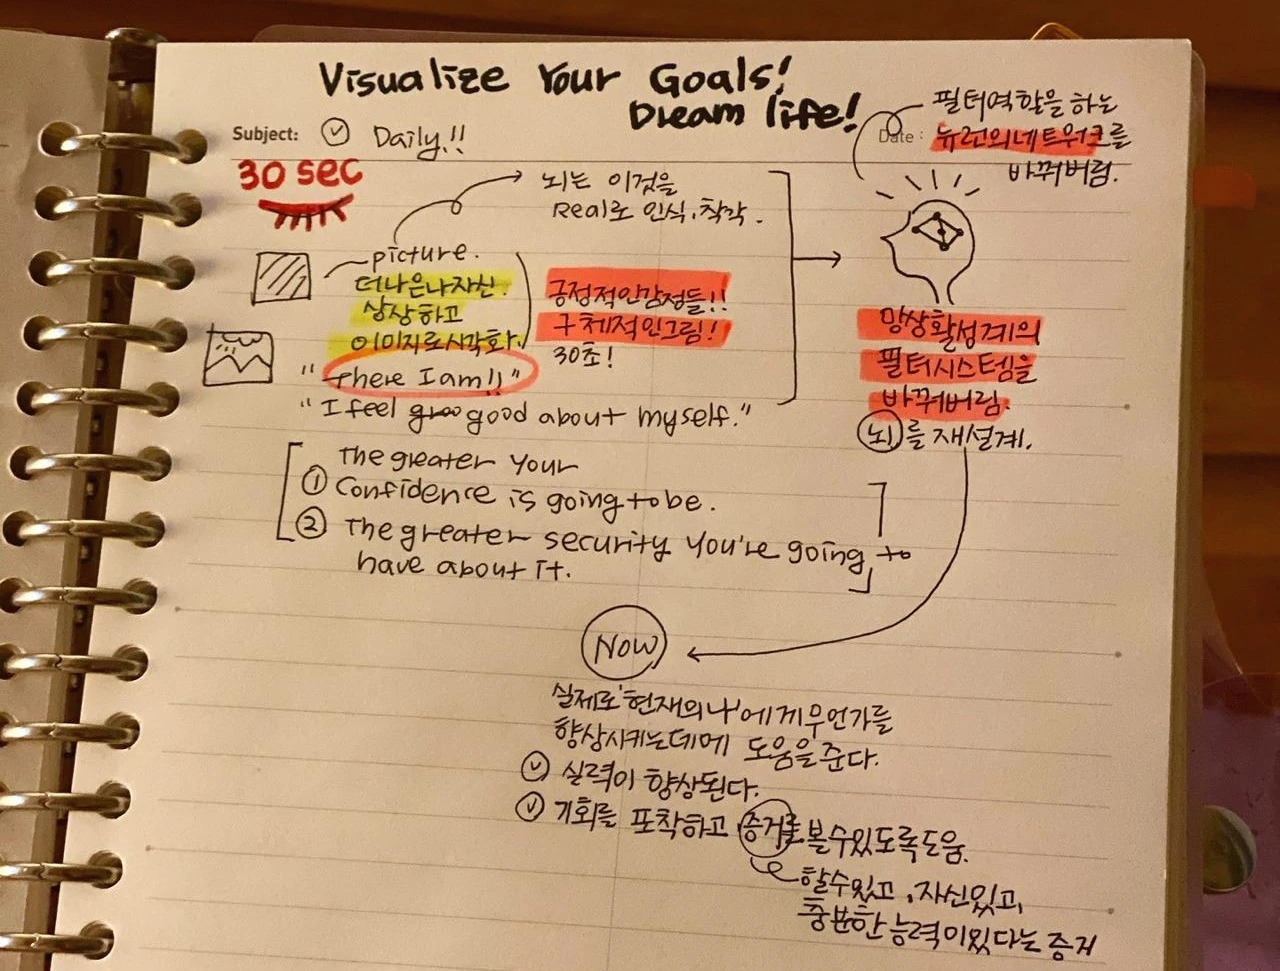 Visualize Your Goals!
Dream life!
Subject: Daily!!
Date :
필터역할을 하는
뉴런의네트워크를
바꿔버림.
30 sec
뇌는 이것을
Real로 인식, 착각.
picture.
더나은나자신.
상상하고
이미지로시각화.
긍정적인감정들!!
구체적인그림!
30초!
"There I am!!"
"I feel good about myself."
망상활성계의
필터시스템을
바꿔버림.
뇌를 재설계.
The greater your
① Confidence is going to be.
② The greater security you're going to
have about it.
Now
실제로 '현재의나'에게무언가를
향상시키는데에 도움을준다.
실력이 향상된다.
기회를 포착하고 증거를 볼수있도록도움.
할수있고, 자신있고,
충분한능력이있다는 증거